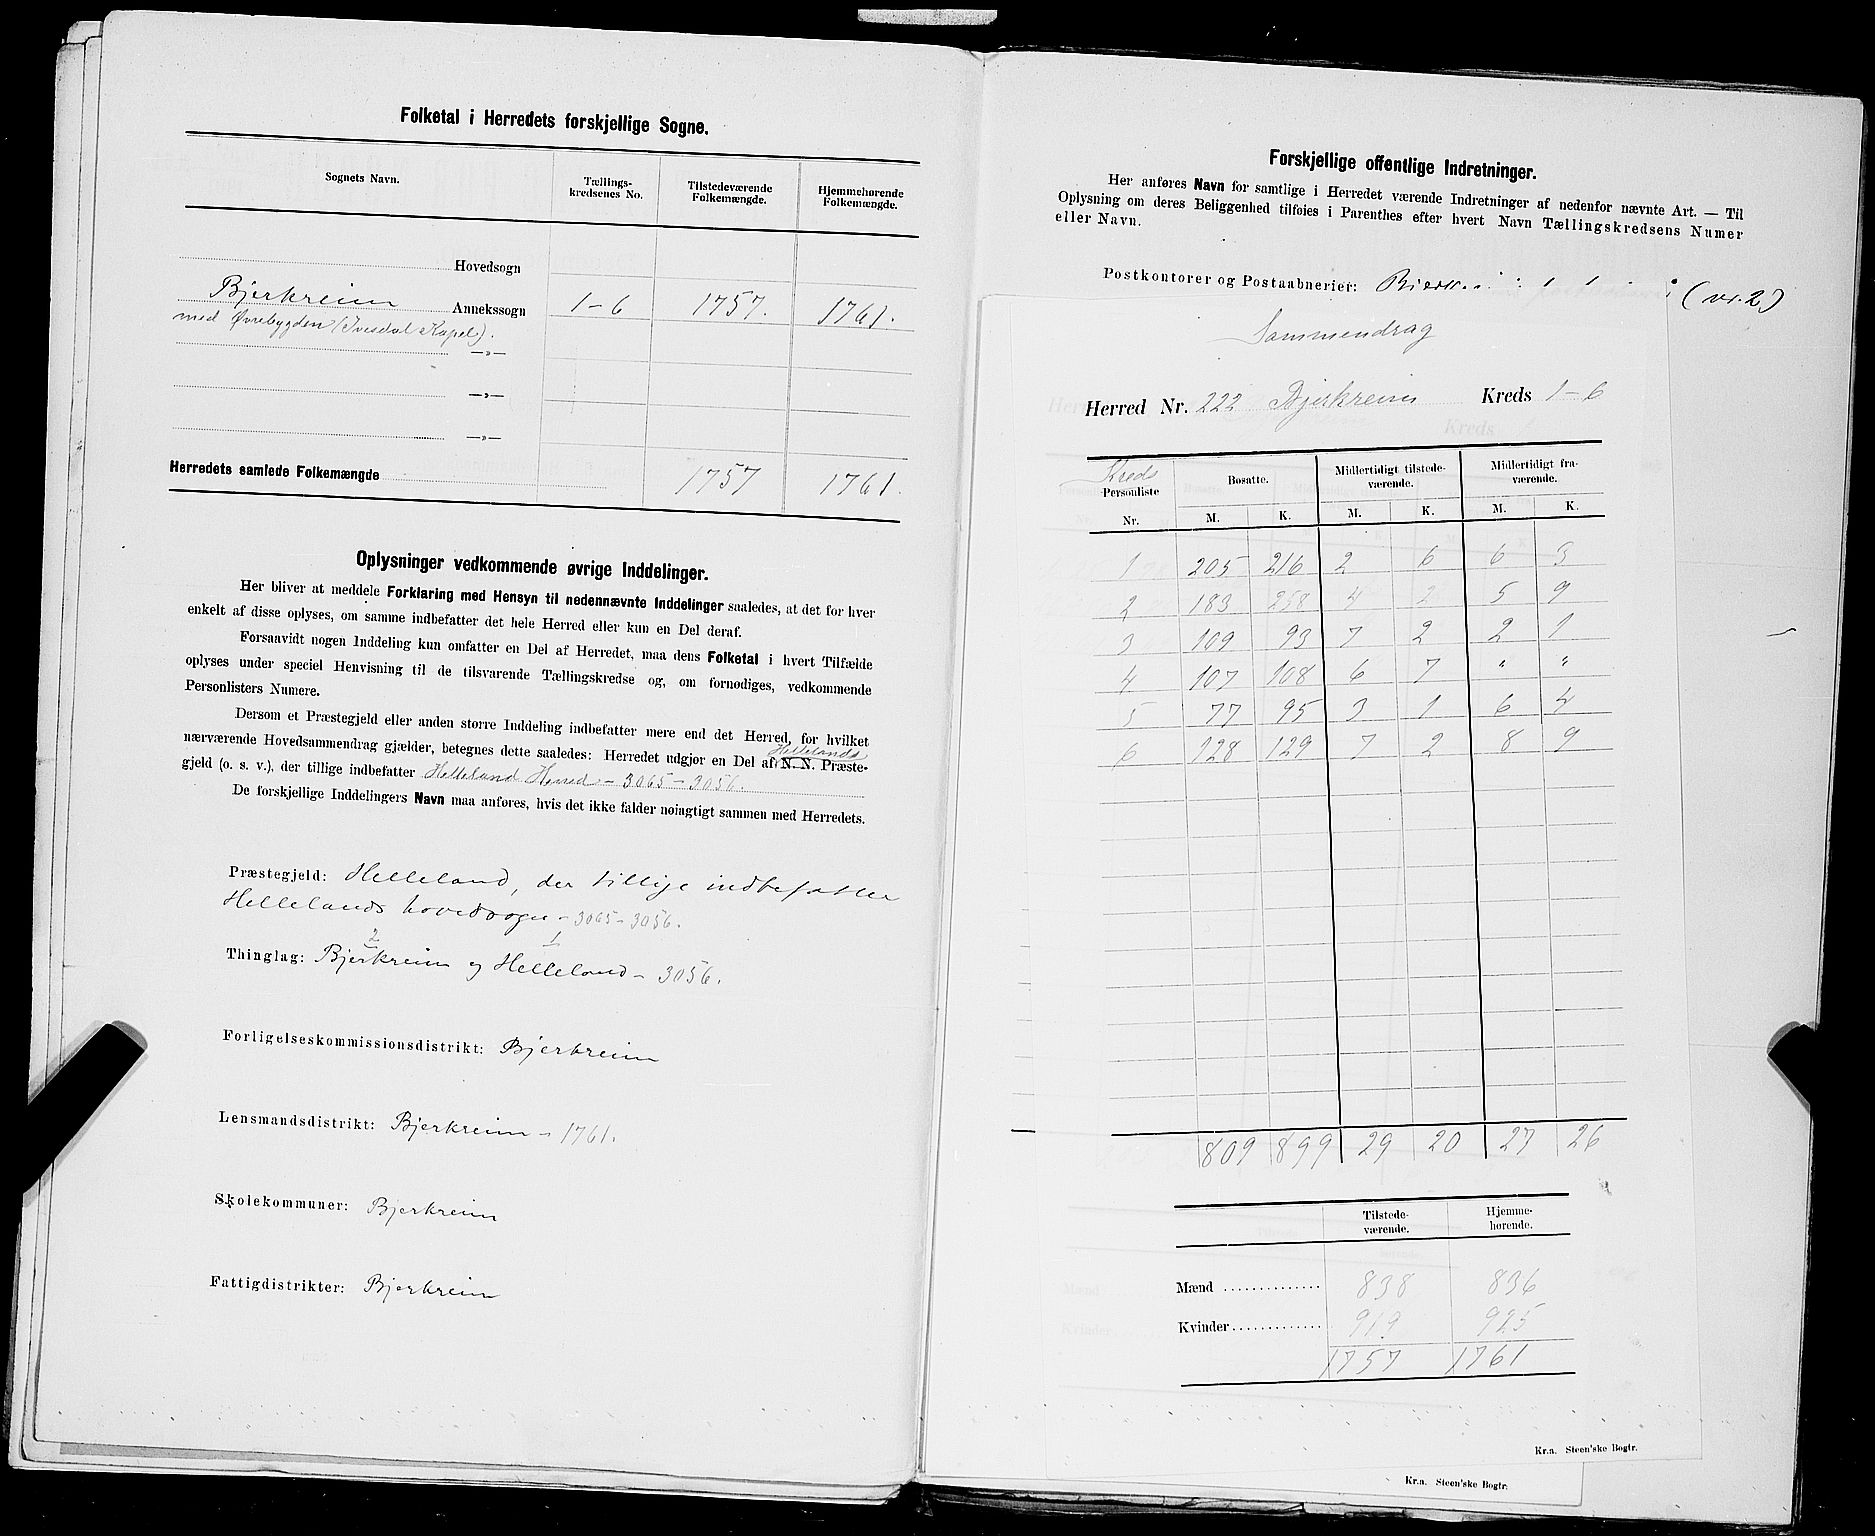 Folketal i Herredets forskjellige Sogne.
Sognets Navn. Tællings-kredsenes No. Tilstedeværende Folkemængde. Hjemmehørende Folkemængde.
Hovedsogn
Bjerkreim Annekssogn 1-6 1757. 1761.
med Øvrebygden (Ivesdal Kapel).
—„—
—„—
—„—
Herredets samlede Folkemængde 1757 1761.
Oplysninger vedkommende øvrige Inddelinger.
Her bliver at meddele Forklaring med Hensyn til nedennævnte Inddelinger saaledes, at det for hver
enkelt af disse oplyses, om samme indbefatter det hele Herred eller kun en Del deraf.
Forsaavidt nogen Inddeling kun omfatter en Del af Herredet, maa dens Folketal i hvert Tilfælde
oplyses under speciel Henvisning til de tilsvarende Tællingskredse og, om fornødiges, vedkommende
Personlisters Numere.
Dersom et Præstegjeld eller anden større Inddeling indbefatter mere end det Herred, for hvilket
nærværende Hovedsammendrag gjælder, betegnes dette saaledes: Herredet udgjør en Del af N. N. Præste-
Hellelands
gjeld (o. s. v.), der tillige indbefatter Helleland Herred - 3065 - 3056.
De forskjellige Inddelingers Navn maa anføres, hvis det ikke falder nøiagtigt sammen med Herredets.
Præstegjeld: Helleland, der tillige indbefatter
Hellelands hovedsogn - 3065 - 3056.
2 1
Thinglag: Bjerkreim og Helleland - 3056.
Forligelseskommissionsdistrikt: Bjerkreim
Lensmandsdistrikt: Bjerkreim - 1761.
Skolekommuner: Bjerkreim
Fattigdistrikter: Bjerkreim
Forskjellige offentlige Indretninger.
Her anføres Navn for samtlige i Herredet værende Indretninger af nedenfor nævnte Art. — Til
Oplysning om deres Beliggenhed tilføies i Parenthes efter hvert Navn Tællingskredsens Numer
eller Navn.
Postkontorer og Postaabnerier: (nr. 2)
Sammendrag
Herred Nr. 222 Bjerkreim Kreds 1-6
Kreds
Personliste Nr. Bosatte. Midlertidigt tilstede-værende. Midlertidigt fra-værende.
M. K. M. K. M. K.
1 205 216 2 6 6 3
2 183 258 4 2 5 9
3 109 93 7 2 2 1
4 107 108 6 7 " "
5 77 95 3 1 6 4
6 128 129 7 2 8 9
809 899 29 20 27 26
Tilstede-værende. Hjemme-hørende.
Mænd 838 836
Kvinder 919 925
1757 1761
Kr.a. Steen'ske Bogtr.
Kr.a. Steen'ske Bogtr.